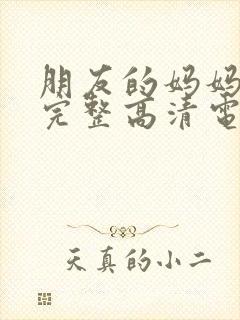 朋友的妈妈
完整高清電
天真的小二